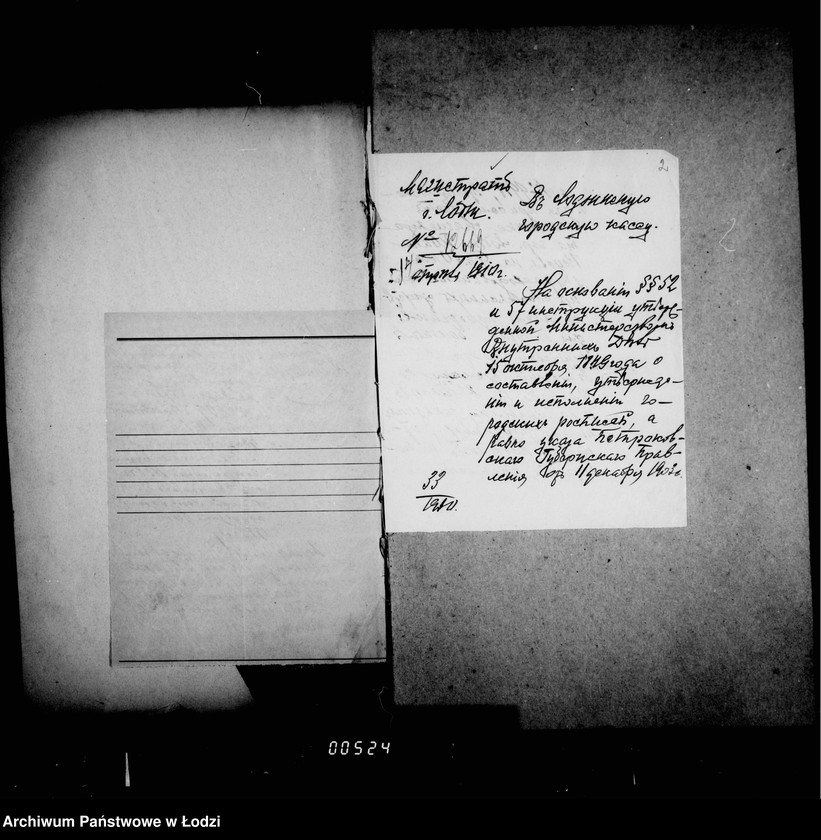 2
Магистратъ
г. Лодзи.
№ 12669
апреля 1910 г.
Въ Лодзинскую
городскую кассу.
На основаніи §§ 52
и 57 инструкціи утверж-
денной Министерствомъ
Внутреннихъ Дѣлъ
15 октября 1849 года о
составленіи, утвержде-
ніи и исполненіи го-
родскихъ росписей, а
равно указа Петроков-
скаго Губернскаго Прав-
ленія отъ 11 декабря
33
1910.
00524
Archiwum Państwowe w Łodzi